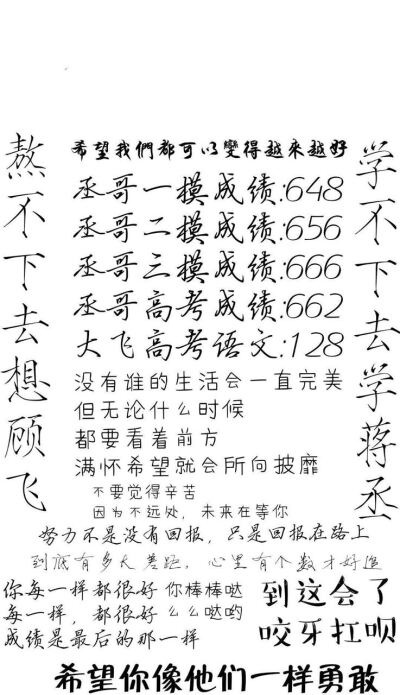 希望我們都可以變得越來越好
熬不下去想顾飞
学不下去学蒋丞
丞哥一摸成绩:648
丞哥二摸成绩:656
丞哥三摸成绩:666
丞哥高考成绩:662
大飞高考语文:128
没有谁的生活会一直完美
但无论什么时候
都要看着前方
满怀希望就会所向披靡
不要觉得辛苦
因为不远处，未来在等你
努力不是没有回报，只是回报在路上
到底有多大差距，心里有个数才好追
你每一样都很好 你棒棒哒
每一样，都很好 么么哒哟
成绩是最后的那一样
到这会了
咬牙扛呗
希望你像他们一样勇敢